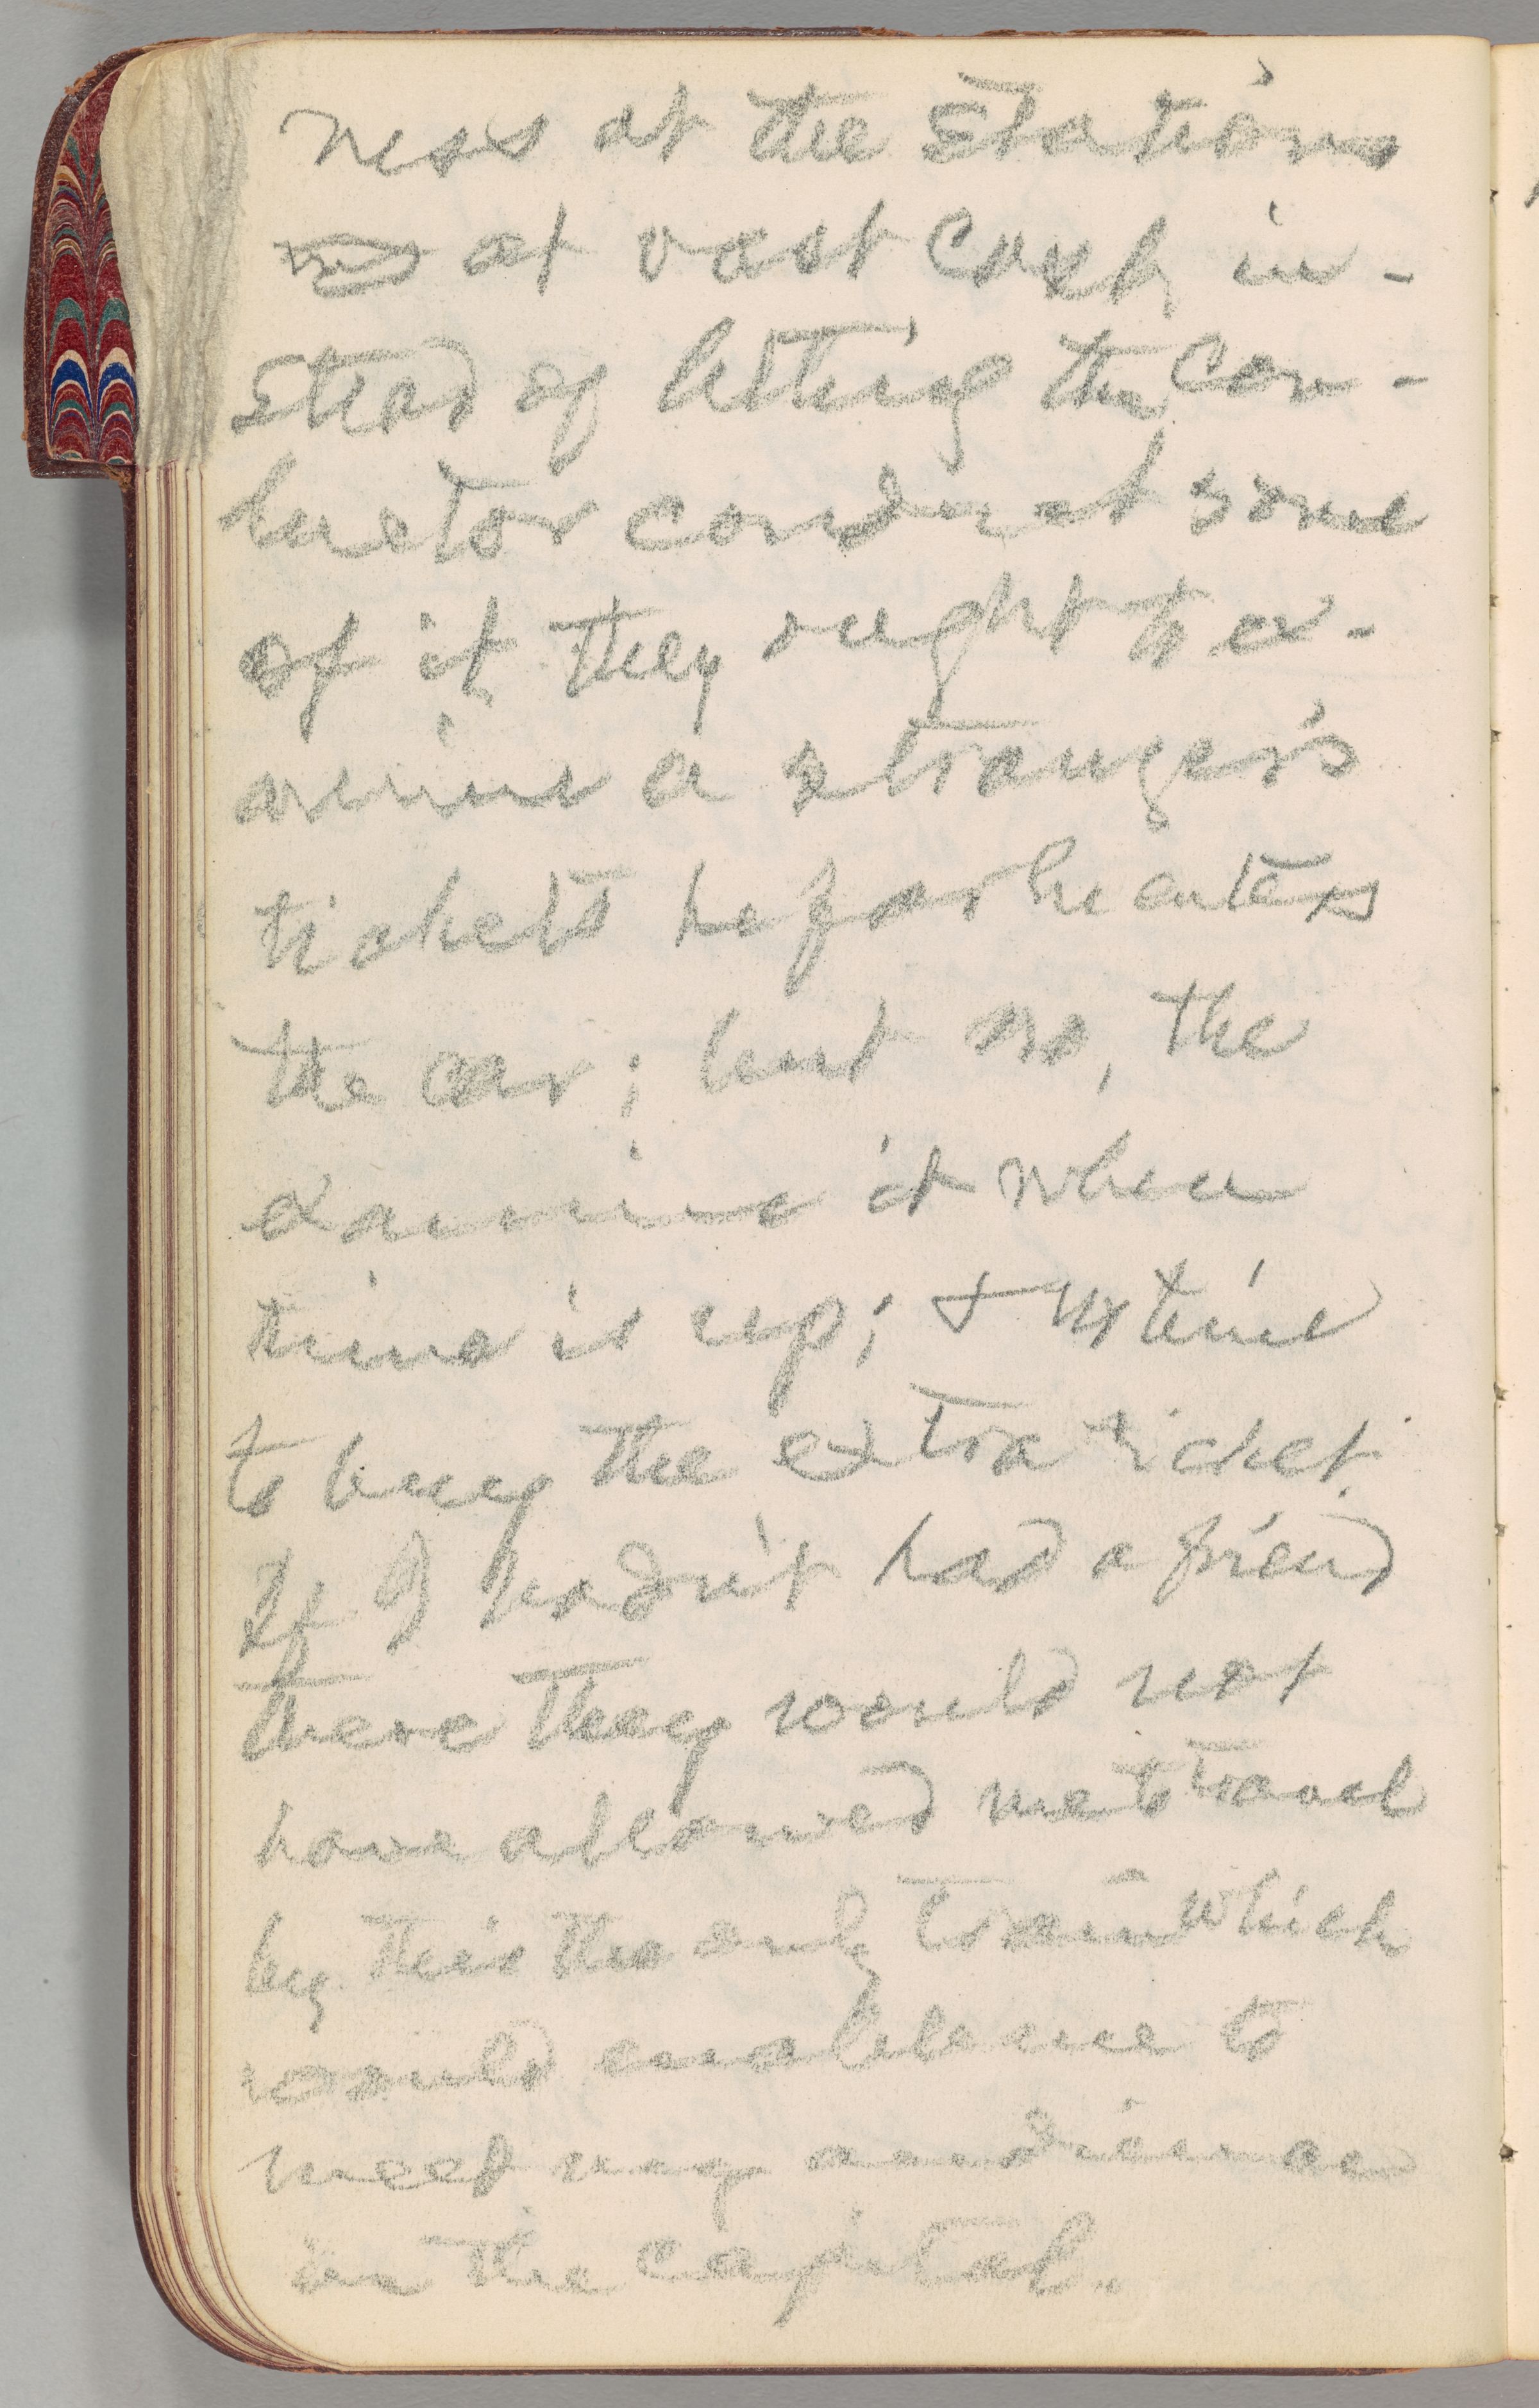 ness at the stations
at vast cost, in-
stead of letting the con-
ductor conduct some
of it, they ought to ex-
amine a stranger's
tickets before he enters
the car; but no, the
examine it when
time is up; & no time
to buy the extra ticket.
If I hadn't had a friend
there they would not
have allowed me to travel
by this the only train which
would enable me to
meet my audience
in the capital.